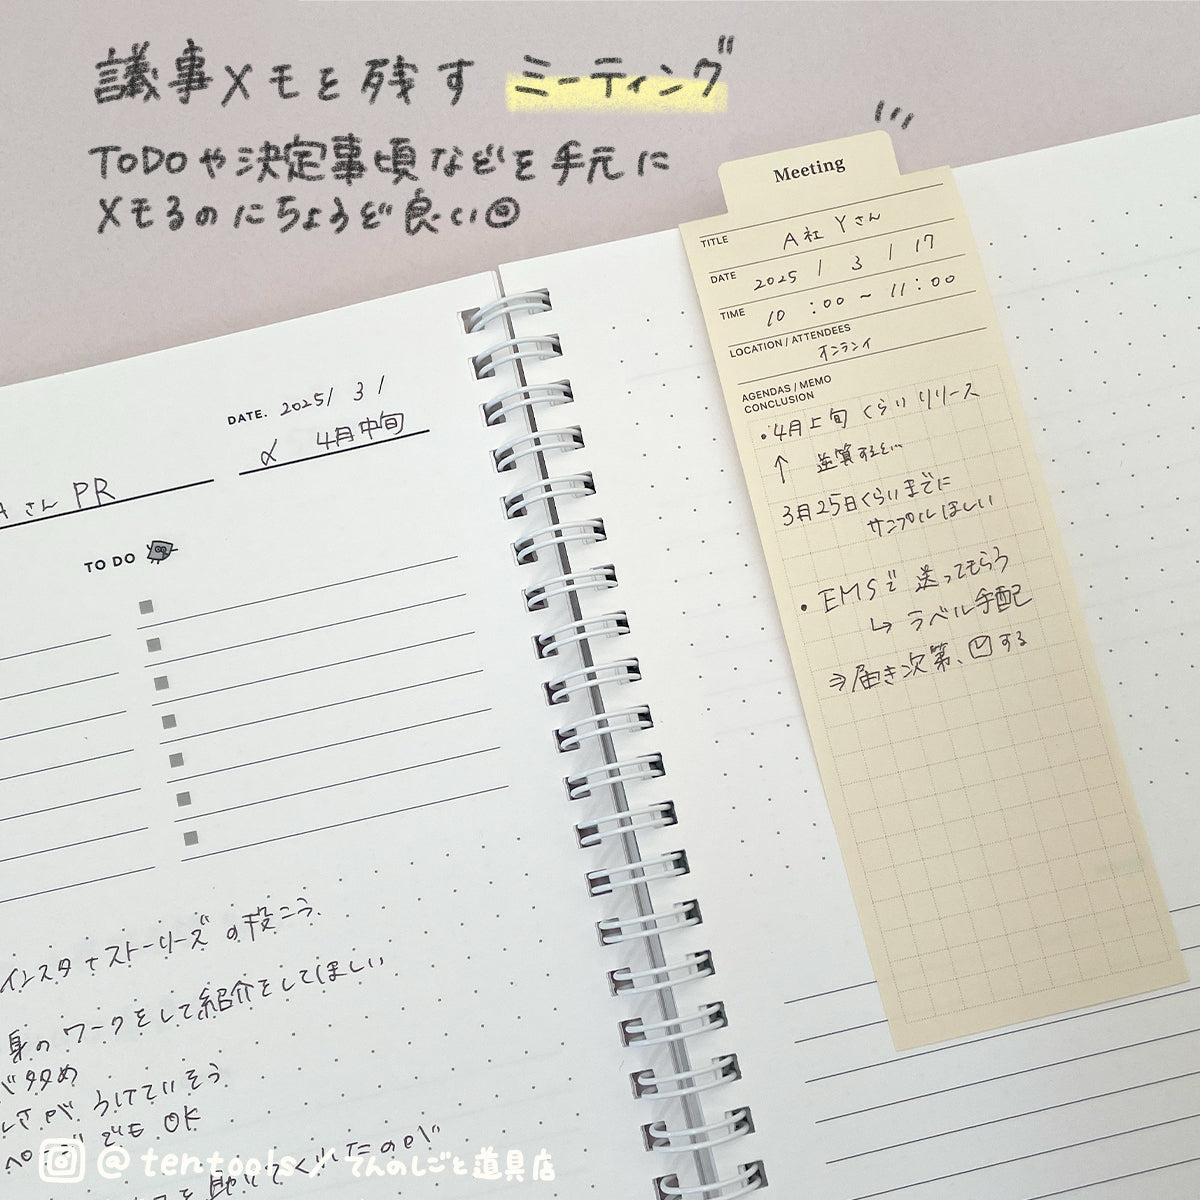 議事メモを残す ミーティング
TODOや決定事項などを手元に
メモるのにちょうど良い◎
Meeting
TITLE A社 Yさん
DATE 2025 / 3 / 17
TIME 10:00~11:00
LOCATION / ATTENDEES
オンライン
AGENDAS / MEMO
CONCLUSION
・4月上旬くらいリリース
↑ 逆算すると…
3月25日くらいまでに
サンプルほしい
・EMSで送ってもらう
↳ラベル手配
⇒届き次第、する
DATE. 2025/ 3 /
〆 4月中旬
さん PR
TO DO
インスタ+ストーリーズの投こう
身のワークをして紹介をしてほしい
多め
さが うけていそう
でも OK
@tentools / てんのしごと道具店